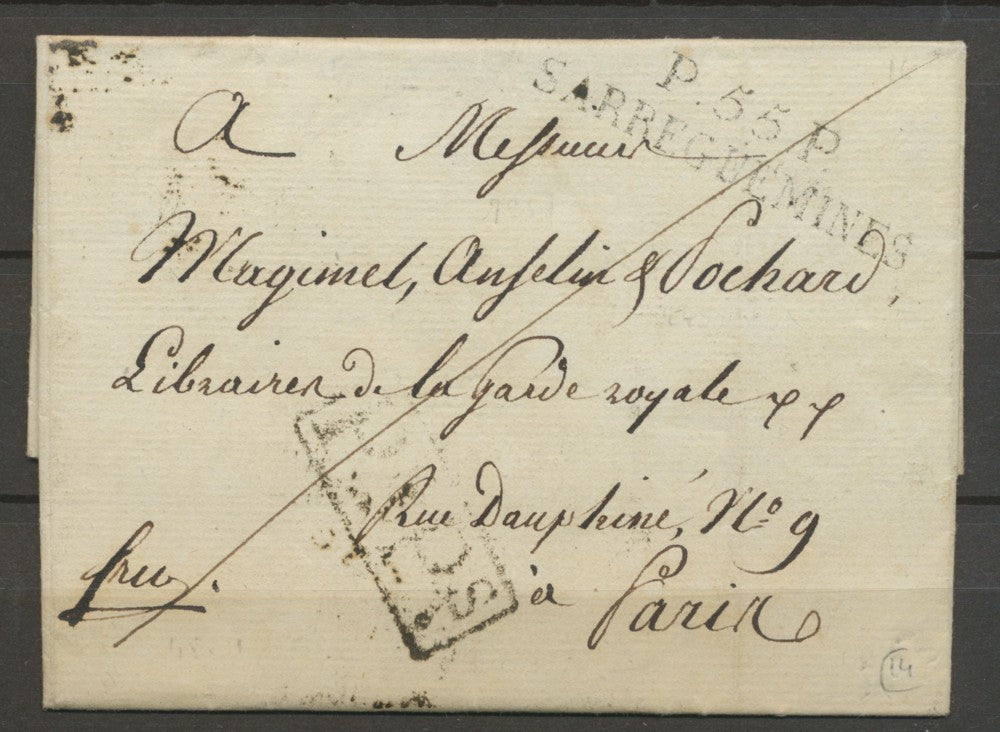 P.55.P
SARREGUEMINES
A Messieurs
Magimel, Anselin & Pochard,
Libraires de la Garde royale
Rue Dauphine, No. 9
à Paris
14